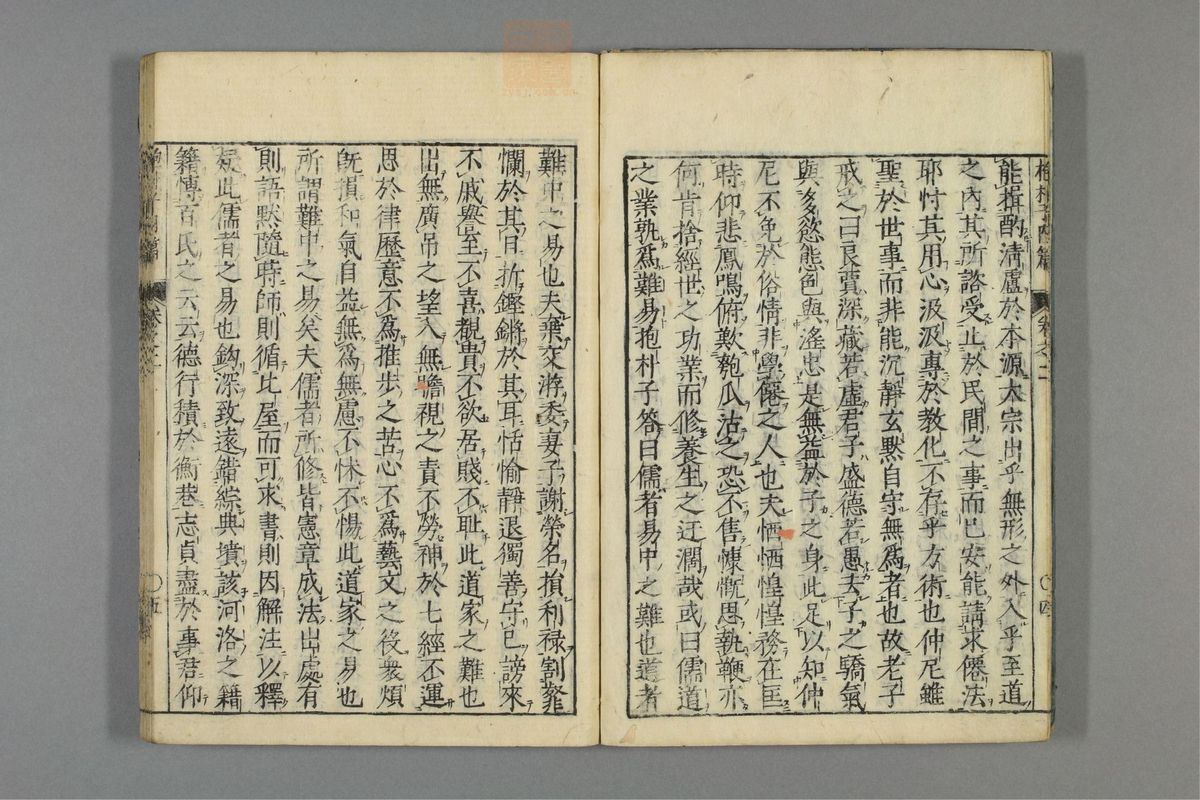 抱朴子內篇 卷之二 〇四
能挹酌清虛於本源大宗出乎無形之外入乎至道
之內其所諮受止於民間之事而已安能請求僊法
耶忖其用心汲汲專於教化不存乎方術也仲尼雖
聖於世事而非能沉靜玄默自守無爲者也故老子
戒之曰良賈深藏若虛君子盛德若愚去子之驕氣
與多慾態色與滛志是無益於子之身此足以知仲
尼不免於俗情非學僊之人也夫恓恓惶惶務在匡
時仰悲鳳鳴俯歎匏瓜沽之恐不售慷慨思執鞭亦
何肯捨經世之功業而修養生之迂濶哉或曰儒道
之業孰爲難易抱朴子答曰儒者易中之難也道者
難中之易也夫棄交游委妻子謝榮名損利祿割粲
爛於其目抑鏗鏘於其耳恬愉靜退獨善守已謗來
不戚譽至不喜覩貴不欲居賤不耻此道家之難也
出無慶吊之望入無瞻視之責不勞神於七經不運
思於律歷意不爲推步之苦心不爲藝文之役衆煩
旣損和氣自益無爲無慮不怵不惕此道家之易也
所謂難中之易矣夫儒者所修皆憲章成法出處有
則語默隨時師則循比屋而可求書則因解注以釋
疑此儒者之易也鈎深致遠錯綜典墳該河洛之籍
籍博百氏之云云德行積於衡巷志貞盡於事君仰
〇五